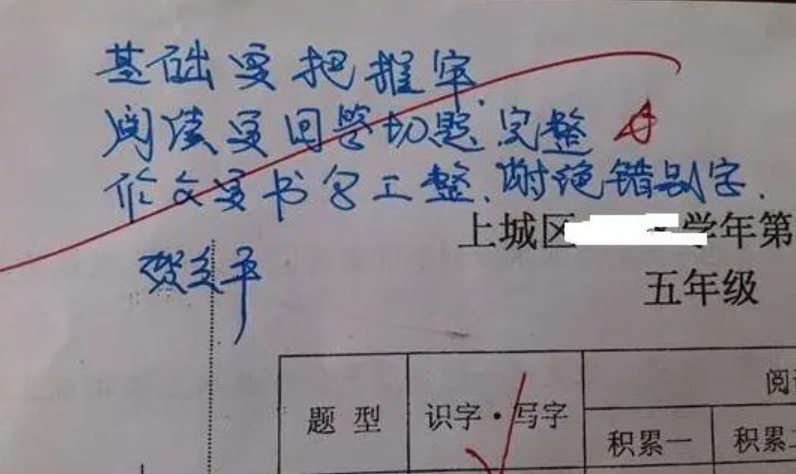 基础要把握牢、
阅读要回答切题、完整
作文要书写工整、谢绝错别字.
上城区 学年第
五年级
题 型
识字·写字
阅
积累一
积累二